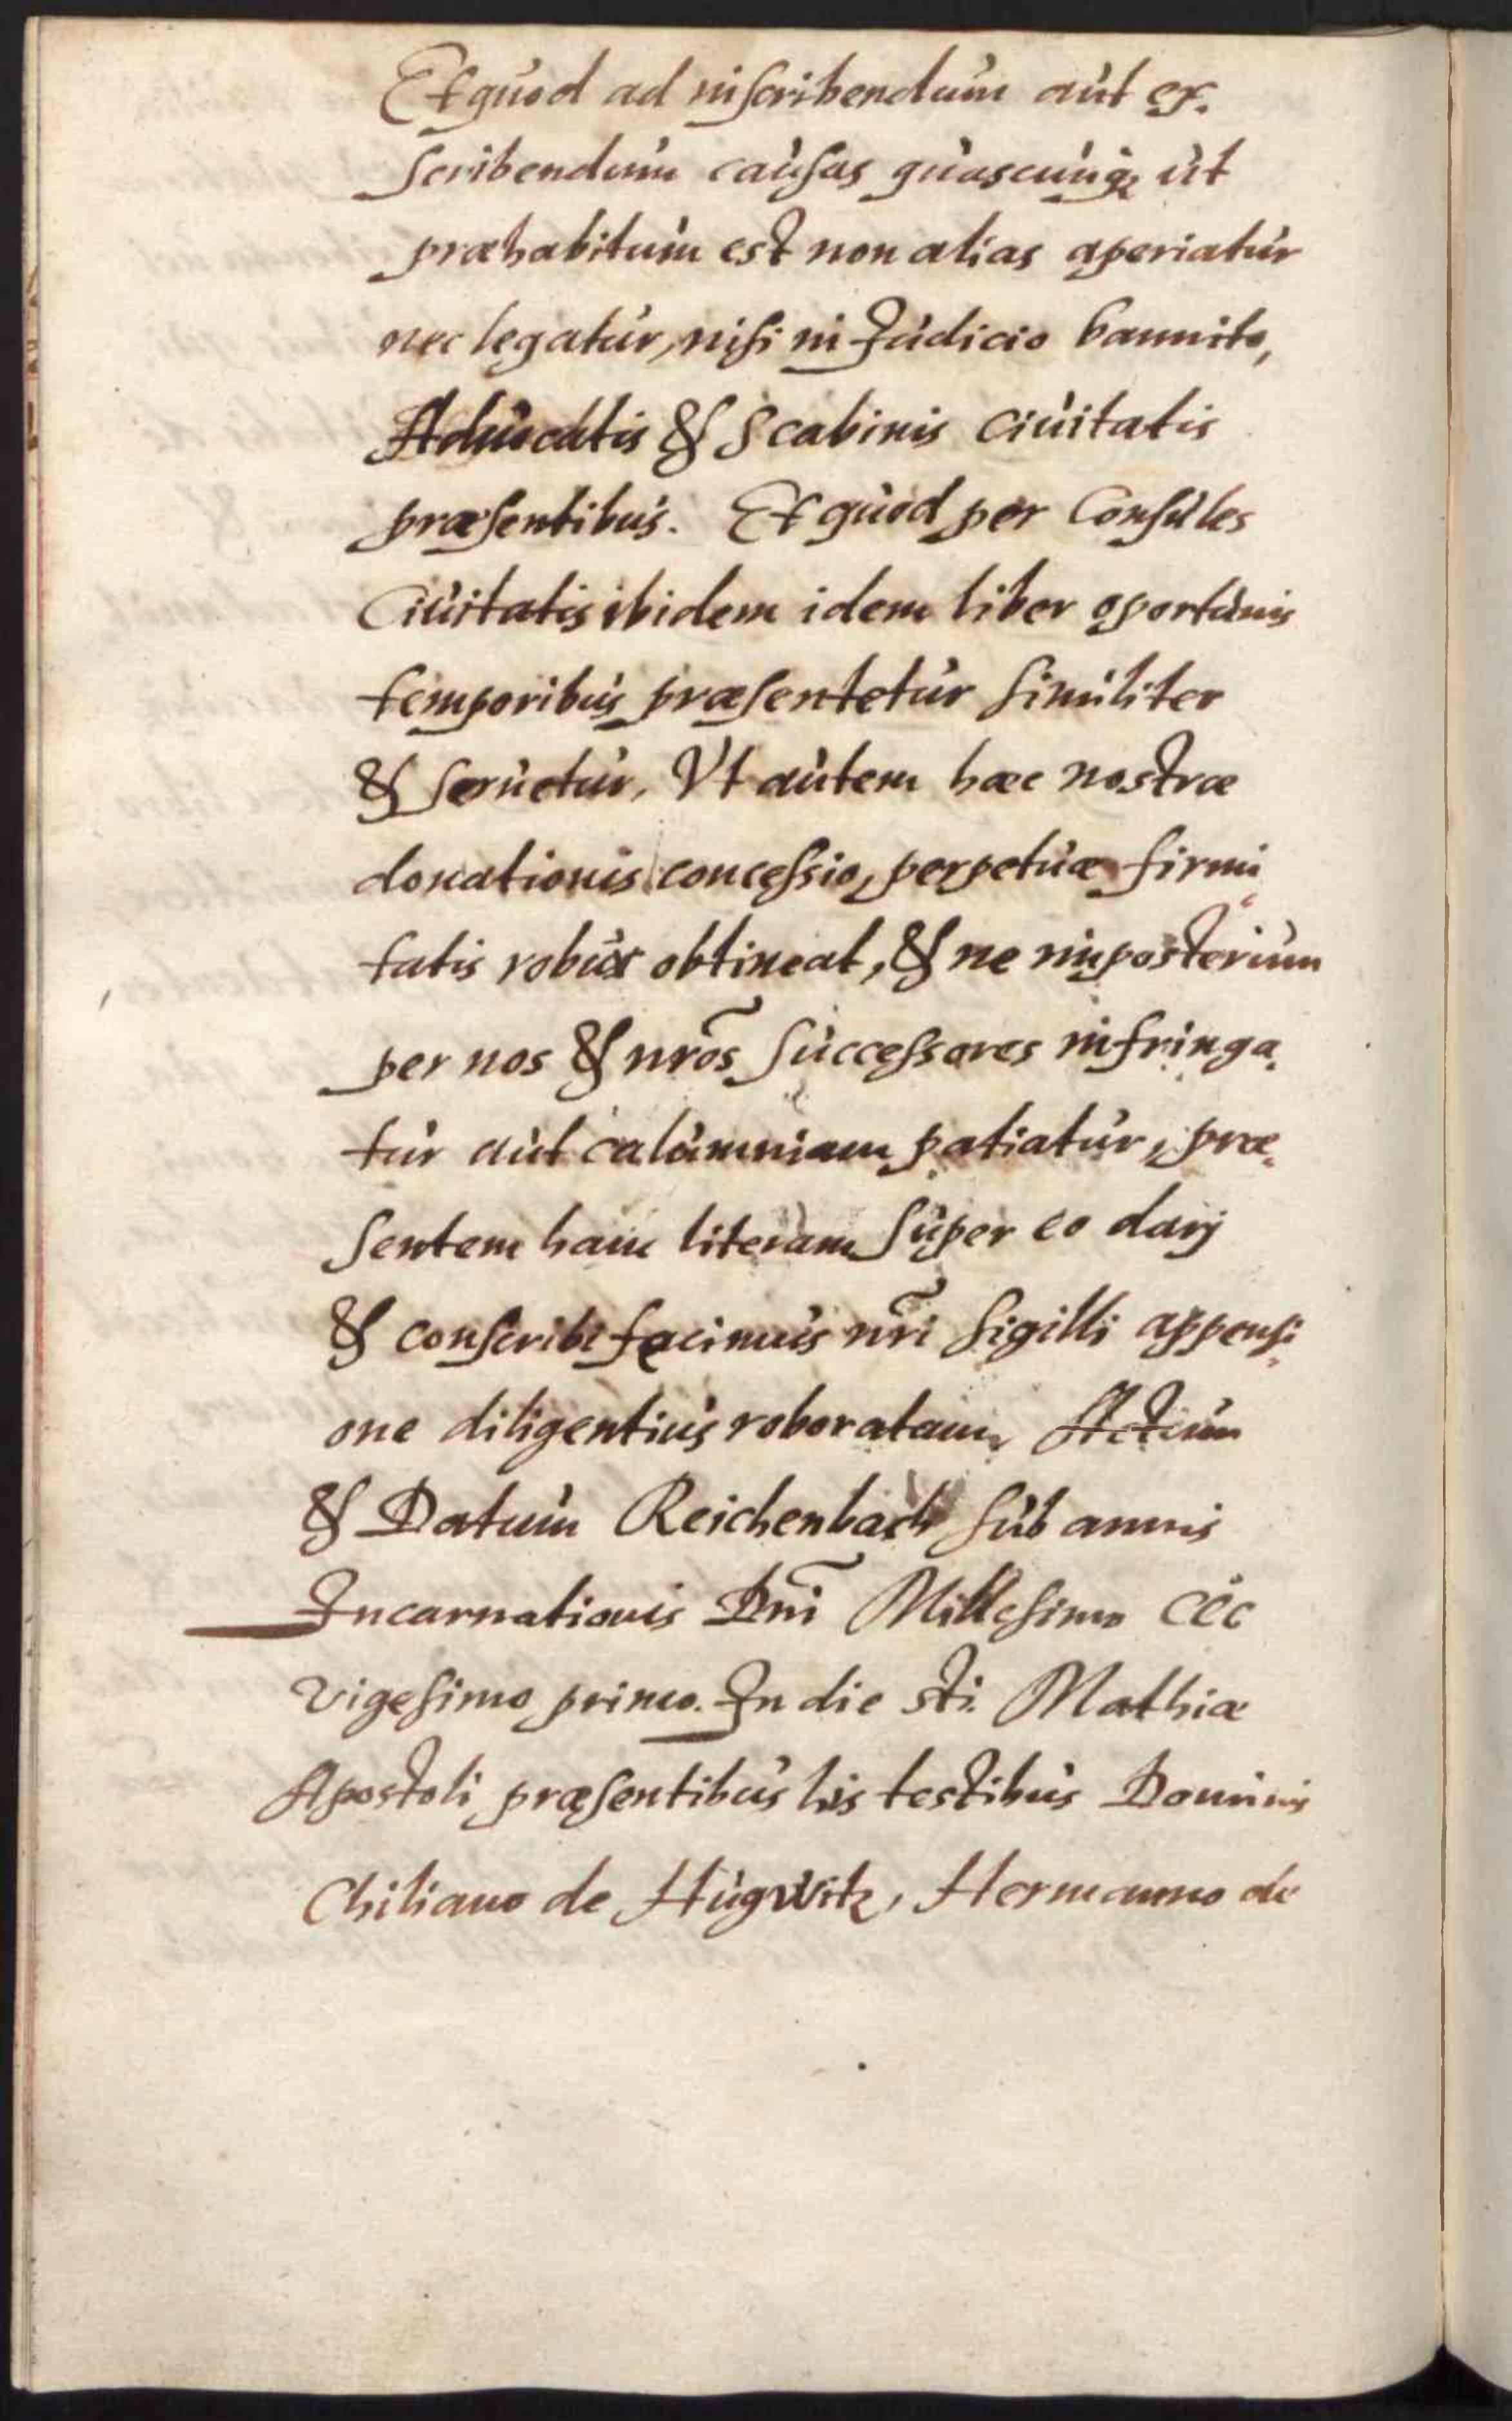 Et quod ad inscribendum aut ex-
scribendum causas quascunq; ut
præhabitum est non alias aperiatur
nec legatur, nisi in Judicio bannito,
Aduocatis & Scabinis Ciuitatis
præsentibus. Et quod per Consules
Ciuitatis ibidem idem liber oportunis
temporibus præsentetur similiter
& seruetur, Vt autem hæc nostræ
donationis concessio, perpetuæ firmi-
tatis robur obtineat, & ne inposterum
per nos & nr̃os Successores infringa-
tur aut calumniam patiatur, præ-
sentem hanc literam super eo darj
& conscribi facimus nr̃i sigilli appensi-
one diligentius roboratam, Actum
& Datum Reichenbach sub annis
Incarnationis Dñi Millesimo CCC
vigesimo primo. In die sti. Mathiæ
Apostoli præsentibus his testibus Dominis
Chiliano de Hugwitz, Hermanno de